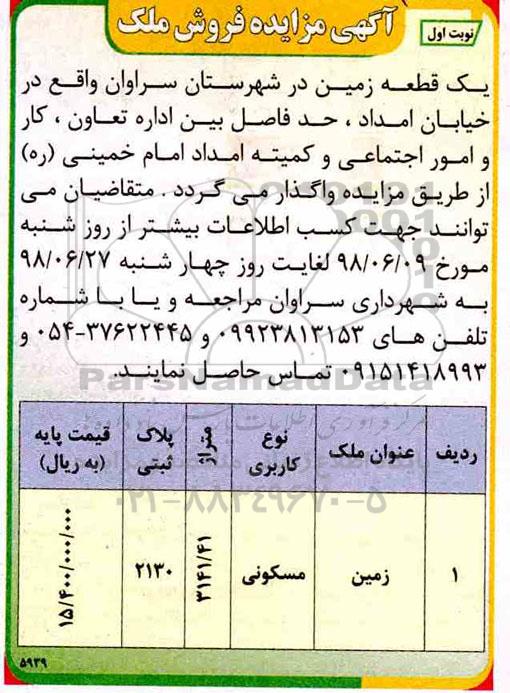 آگهی مزایده فروش ملک
نوبت اول
یک قطعه زمین در شهرستان سراوان واقع در
خیابان امداد ، حد فاصل بین اداره تعاون ، کار
و امور اجتماعی و کمیته امداد امام خمینی (ره)
از طریق مزایده واگذار می گردد . متقاضیان می
توانند جهت کسب اطلاعات بیشتر از روز شنبه
مورخ ۹۸/۰۶/۰۹ لغایت روز چهار شنبه ۹۸/۰۶/۲۷
به شهرداری سراوان مراجعه و یا با شماره
تلفن های ۰۹۹۲۳۸۱۳۱۵۳ و ۳۷۶۲۲۴۴۵-۰۵۴ و
۰۹۱۵۱۴۱۸۹۹۳ تماس حاصل نمایند.
ParsNamadData
۰۲۱-۸۸۳۴۹۶۷۰-۵
ردیف عنوان ملک نوع کاربری متراژ پلاک ثبتی قیمت پایه (به ریال)
۱ زمین مسکونی ۳۱۴۱/۴۱ ۲۱۳۰ ۱۵/۴۰۰/۰۰۰/۰۰۰
۵۹۳۹